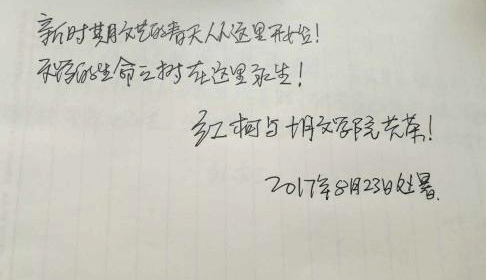 新时期文艺的春天从这里开始!
永远的生命之树在这里永生!
红柯与十月文学院共荣!
2017年8月23日处暑